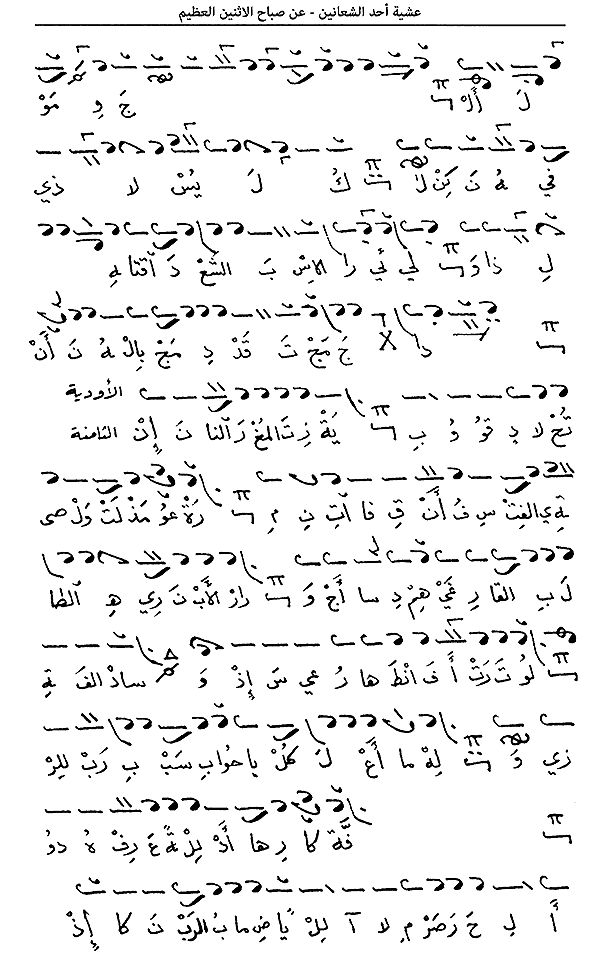 عشية أحد الشعانين - عن صباح الاثنين العظيم
لَ أَلْ جَ دِ مَوْ
في هُ نَ كِنْ لَا كُ لَ يُسْ لا ذي
لِ ذا وَ لي ئي را الاِسْ بَ الشَّعْ دَ
دا جَ مَجْ تَ قَدْ دِ مَجْ بِالْ هُ نَ أَنْ
الأودية
تُخْ لا دِ قو وُ بِ يَةْ زِتَ المُغْ رَ آلنا نَ إِنْ الثامنة
ةِ ي الفِتْ سِ فُ أَنْ قِ فا آتِ نِ مِ رَةْ عَوْ مَذْ لَتْ وَلْ صى
لَ بِ القا رِ غَيْ هِمْ دِ سا أَجْ وَ رارْ الأَبْ نَ ري هِ ٱلطا
لُو تَ رَتْ أَ فَ انْطَ ها رُ عي سَ إِذْ وَ سادْ الفَ ةِ
زي وَ لِهْ ما أَعْ لَ كُلْ يا سَبْ بِ رَبْ لِلرْ
كا رِ ها أَدْ لِلْ ةً عَ رِفْ هُ دوُ
أَ لِ حَ رَصَرْ مِ لا آ لِلْ ما بُ الرَبْ نَ كا إِذْ